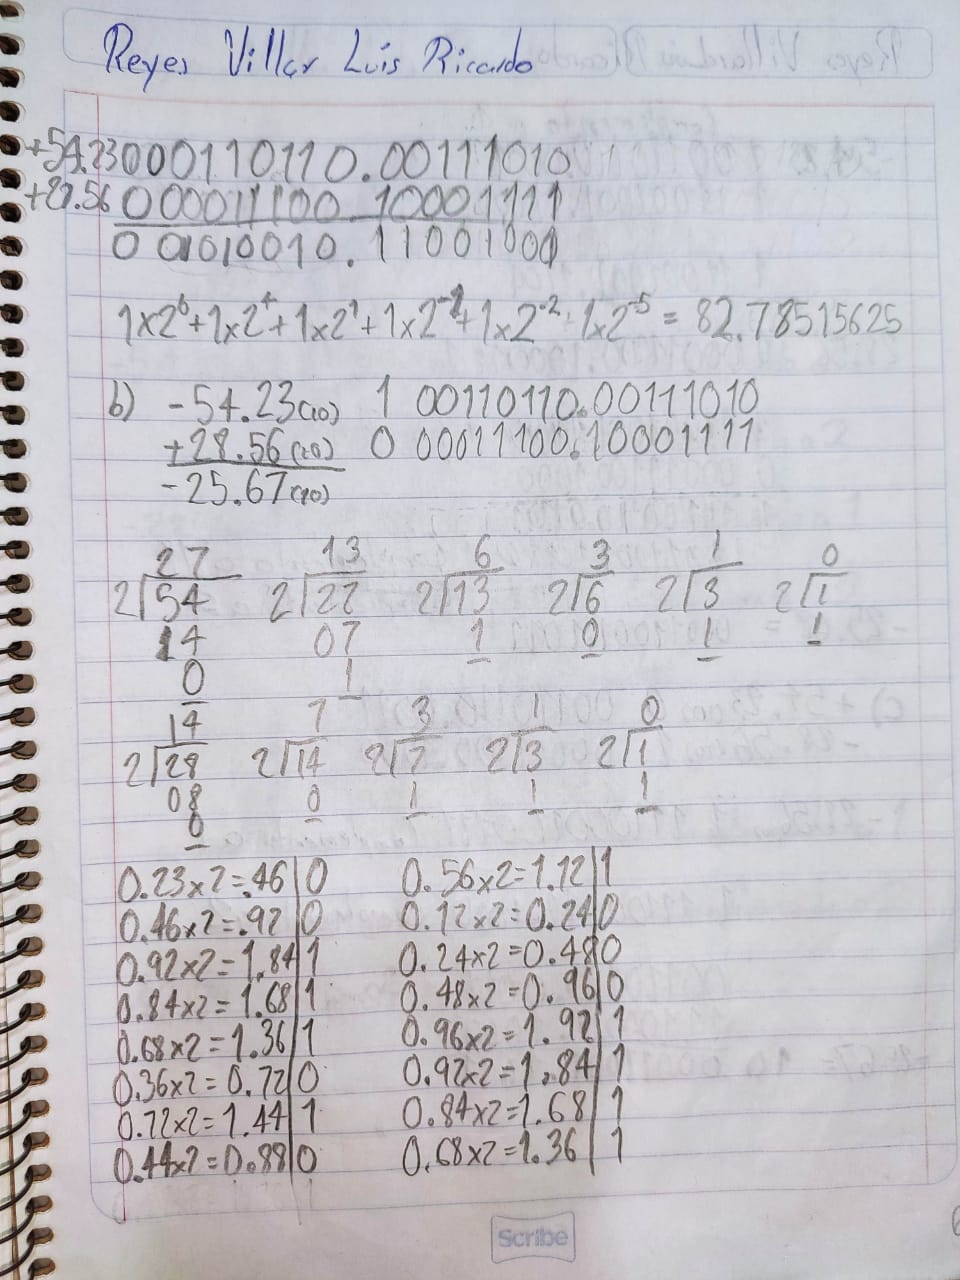 Reyes Villar Luis Ricardo
+54.23 000110110.00111010
+28.56 000011100.10001111
0 01010010.11001001
1x2⁶+1x2⁴+1x2¹+1x2⁻¹+1x2⁻²+1x2⁻⁵=82.78515625
b) -54.23(10) 1 00110110.00111010
+28.56(10) 0 00011100.10001111
-25.67(10)
27 13 6 3 1 0
2√54 2√27 2√13 2√6 2√3 2√1
14 07 1 0 1 1
0 1
14 7 3 1 0
2√28 2√14 2√7 2√3 2√1
08 0 1 1 1
0
0.23x2=.46|0 0.56x2=1.12|1
0.46x2=.92|0 0.12x2=0.24|0
0.92x2=1.84|1 0.24x2=0.48|0
0.84x2=1.68|1 0.48x2=0.96|0
0.68x2=1.36|1 0.96x2=1.92|1
0.36x2=0.72|0 0.92x2=1.84|1
0.72x2=1.44|1 0.84x2=1.68|1
0.44x2=0.88|0 0.68x2=1.36|1
Scribe